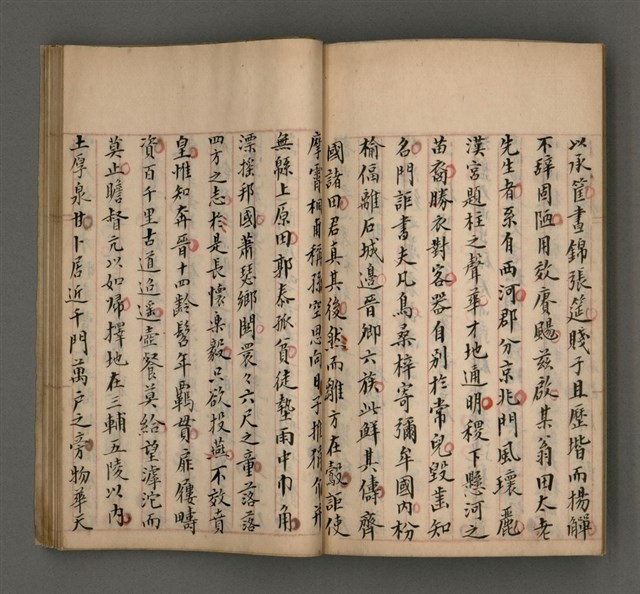 以承筐晝錦張筵賤子且歷堦而揚觶
不辭固陋用效賡颺茲啟某翁田太老
先生者系有兩河郡分京兆門風瓌麗
漢宮題柱之聲華才地通明稷下懸河之
苗裔勝衣對客器自別於常兒毀齒知
名門詎書夫凡鳥桑梓寄彌牟國內枌
榆偪離石城邊晉卿六族此鮮其儔齊
國諸田君真其後然而雛方在鷇詎使
摩霄桐甫稱孫空思向日子推猶
無緜上原田郭泰孤貧徒墊雨中巾角
漂搖邦國蕭瑟鄉閭睘々六尺之童落落
四方之志於是長懷樂毅只欲投燕不效賁
皇惟知奔晉十四齡髫年羈貫扉屨疇
資百千里古道迢遥壺餐莫給望滹沱而
莫止瞻督亢以如歸擇地在三輔五陵以內
土厚泉甘卜居近千門萬戶之旁物華天